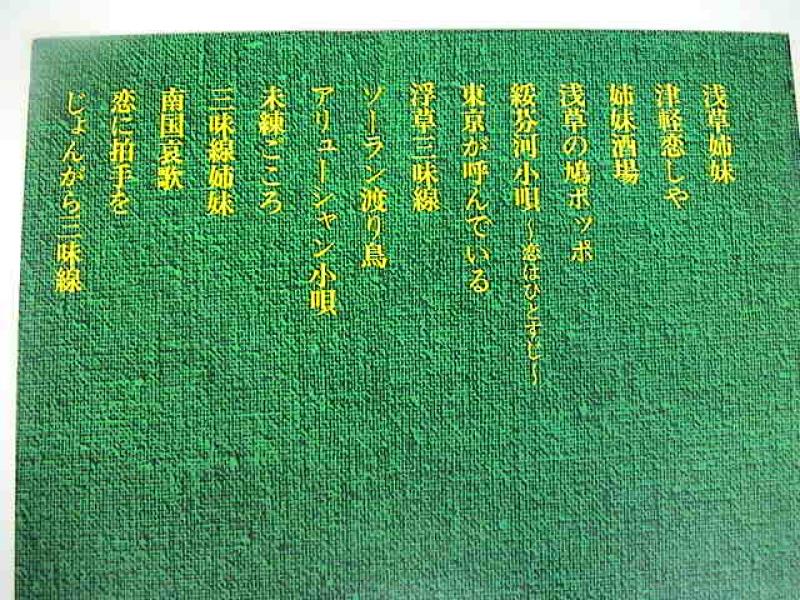 浅草姉妹
津軽恋しや
姉妹酒場
浅草の鳩ポッポ
綏芬河小唄～恋はひとすじ～
東京が呼んでいる
浮草三味線
ソーラン渡り鳥
アリューシャン小唄
未練ごころ
三味線姉妹
南国哀歌
恋に拍手を
じょんがら三味線